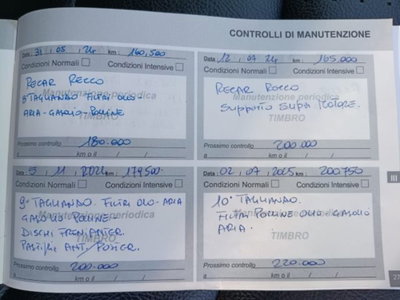 CONTROLLI DI MANUTENZIONE
Data 31 . 05 . 24 km: 160,500
Condizioni Normali Condizioni Intensive
RECAR ROCCO
TAGLIANDO FILTRI OLIO
ARIA - GASOLIO - POLLINE
Manutenzione periodica
TIMBRO
Prossimo controllo 180.000
a km o il / /
Data 12 . 07 . 24 km: 165.000
Condizioni Normali Condizioni Intensive
RECAR ROCCO
SUPPORTO SUPP. MOTORE.
Manutenzione periodica
TIMBRO
Prossimo controllo 200.000
a km o il / /
11 . 2024 km: 179500
Condizioni Normali Condizioni Intensive
9° TAGLIANDO. FILTRI OLIO - ARIA
GASOLIO POLLINE.
DISCHI FREN. ANTER.
PASTIGLIE ANT/POSTER.
Manutenzione periodica
TIMBRO
Prossimo controllo 200.000
a km o il / /
Data 02 . 07 . 2025 km: 200750
Condizioni Normali Condizioni Intensive
10° TAGLIANDO.
FILTRI POLLINE OLIO GASOLIO
ARIA.
Manutenzione periodica
TIMBRO
Prossimo controllo 220.000
a km o il / /
III
27